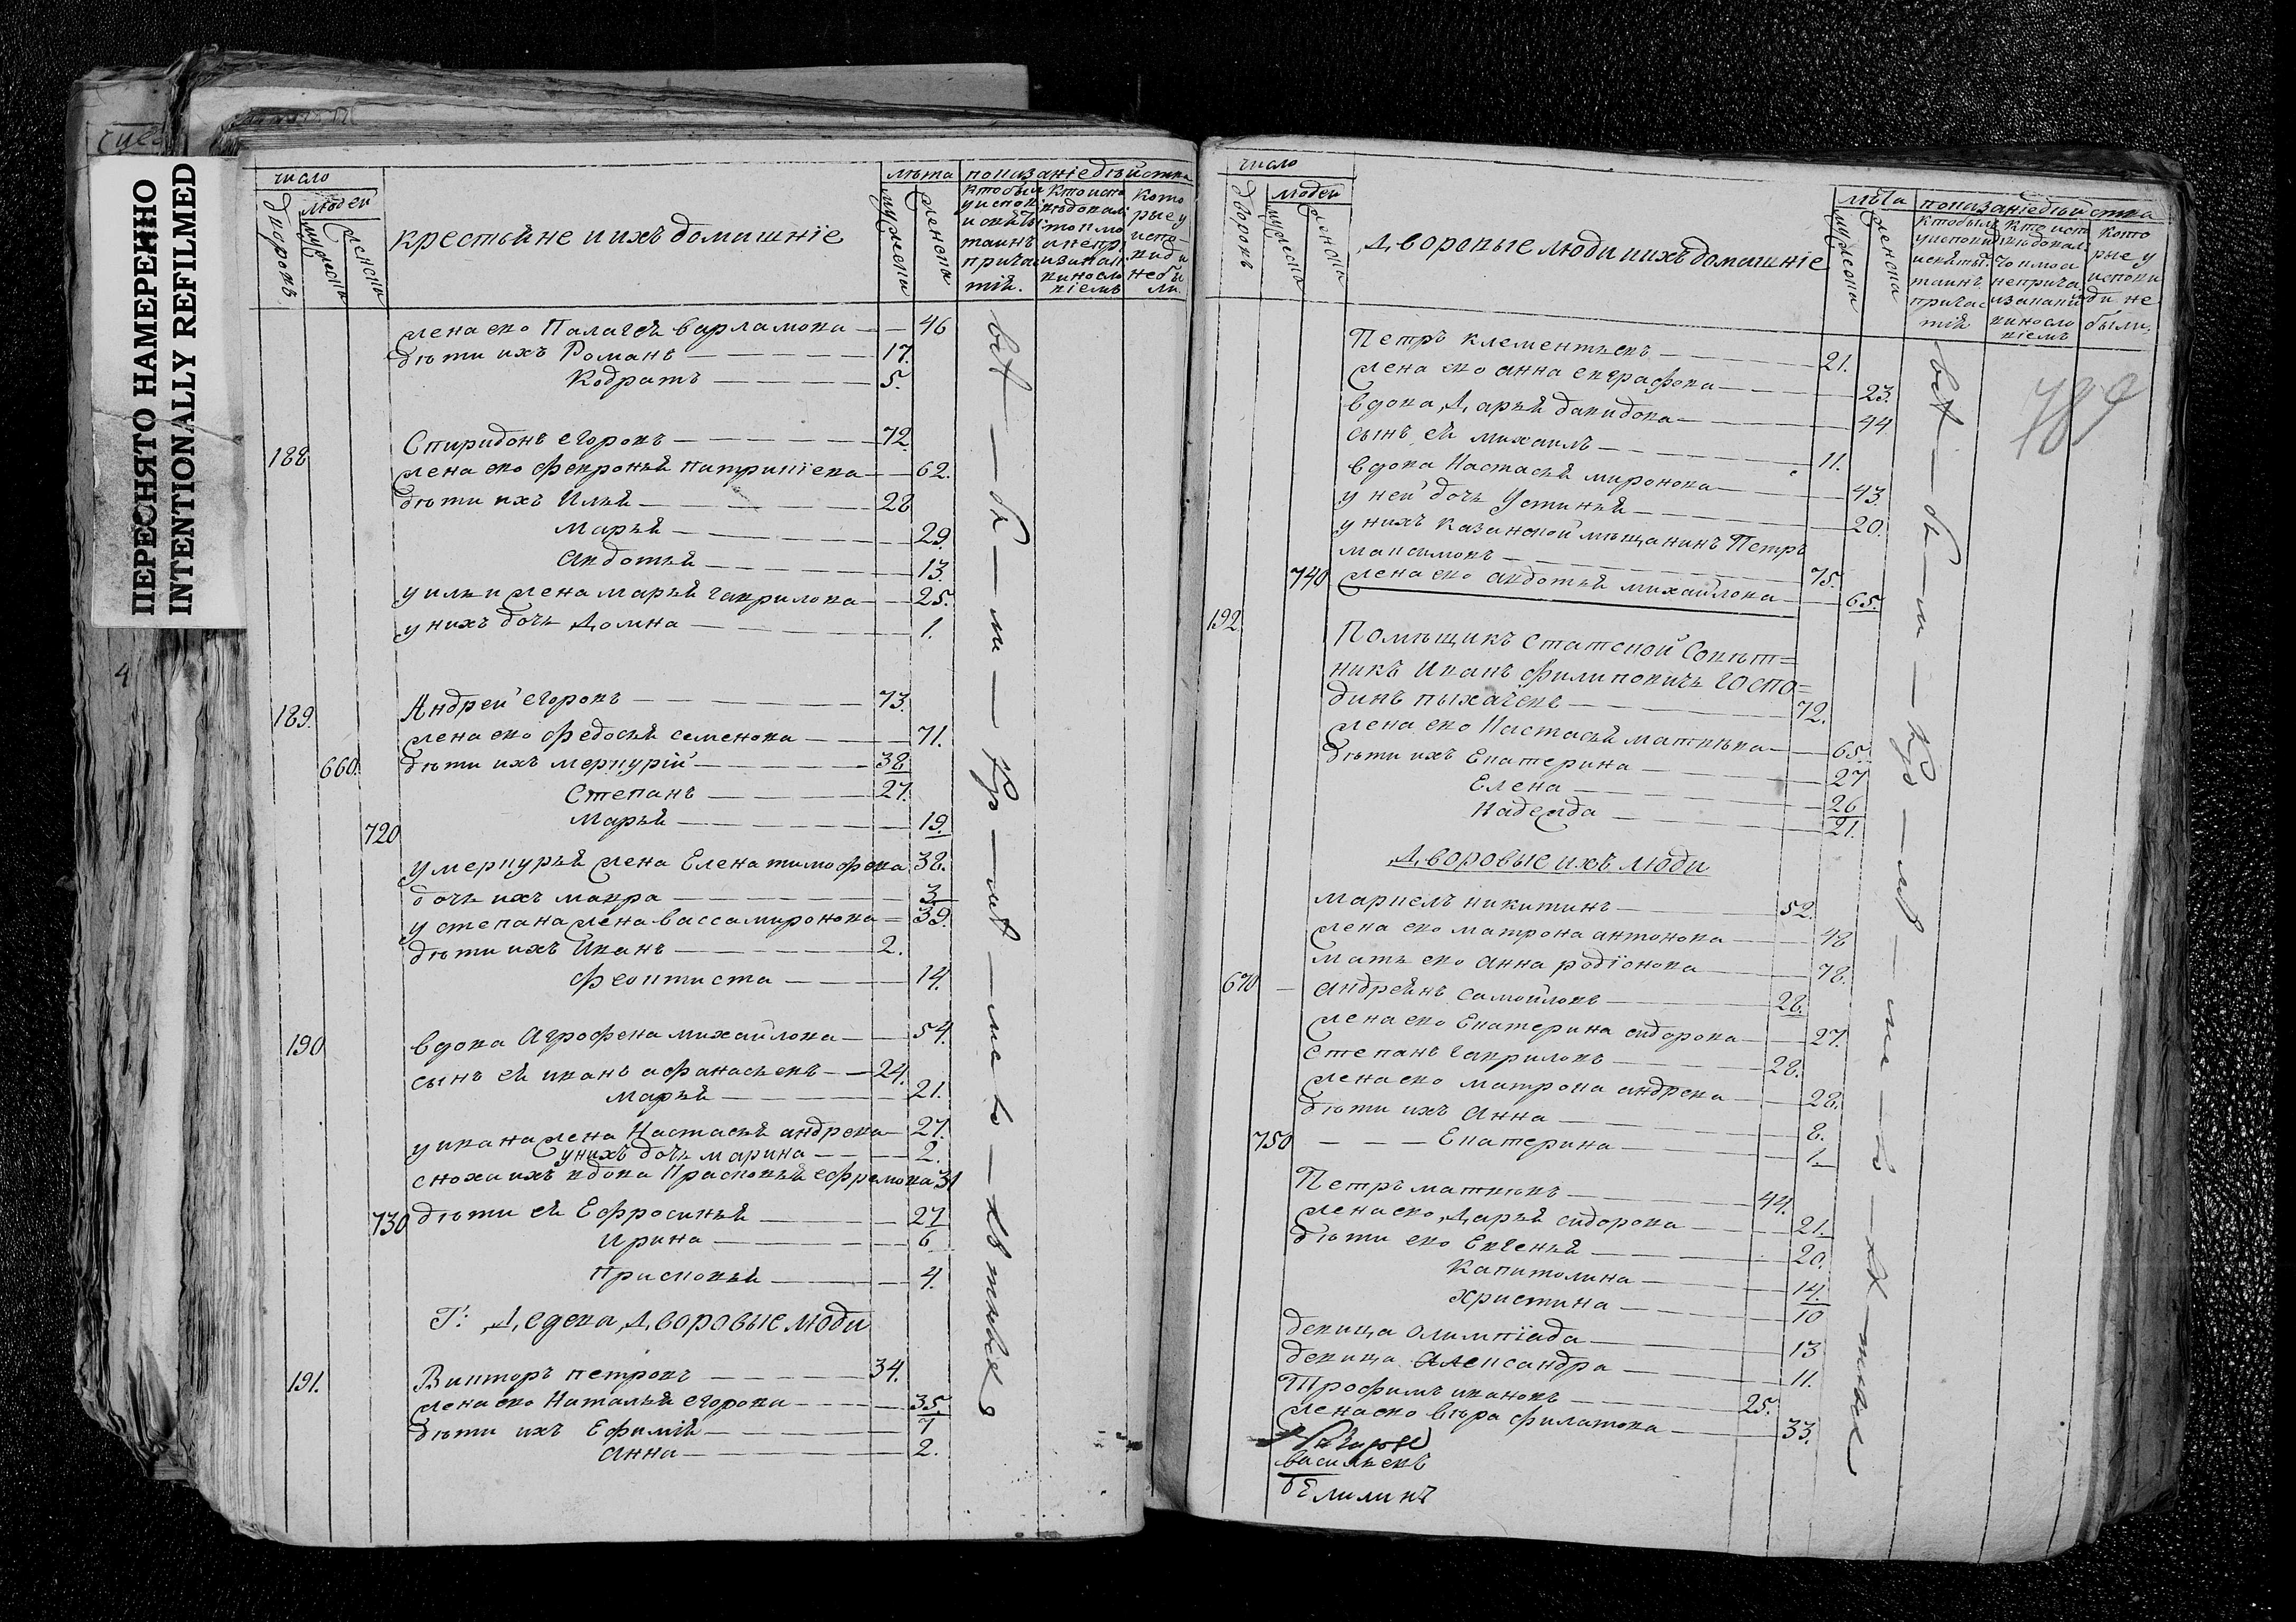 ПЕРЕСНЯТО НАМЕРЕННО
INTENTIONALLY REFILMED
4
число
дворовъ
людей
мужеска
женска
крестьяне и ихъ домашніе
лѣта
мужеска
женска
показаніе дѣйства
кто былъ у исповѣди и святыхъ таинъ причастія.
кто исповѣдовался токмо а не причастился и за какимъ винословіемъ
которые у исповѣди не были.
жена ево Палагея варламова 46
дѣти ихъ Романъ 17.
Кодратъ 5.
188 Спиридонъ егоровъ 72
жена ево февронья патрикіева 62.
дѣти ихъ Илья 28
марья 29.
авдотья 13.
у ильи жена марья гаврилова 25.
у нихъ дочь домна 1.
189. Андрей егоровъ 73.
жена ево федосья семенова 71.
660. дѣти ихъ меркурій 38
Степанъ 27.
720 марья 19.
у меркурья жена Елена тимофева 38.
дочь ихъ мавра 3.
у степана жена васса миронова 39.
дѣти ихъ Иванъ 2.
феоктиста 14.
190 вдова Агрофена михайлова 54.
сынъ ея иванъ афанасьевъ 24.
марья 21.
у ивана жена Настасья андрева 27.
у нихъ дочь марина 2.
сноха ихъ вдова Прасковья ефремова 31
730 дѣти ея Ефросинья 27
Ирина 6
Прасковья 4.
Г: Дедева дворовые люди
191. Викторъ петровъ 34.
жена ево Наталья егорова 35.
дѣти ихъ Ефимія 7
анна 2.
число
дворовъ
людей
мужеска
женска
Дворовые люди и ихъ домашніе
лѣта
мужеска
женска
показаніе дѣйства
789
Петръ клементьевъ 21.
жена ево анна евграфова 23.
вдова Дарья давидова 44
сынъ ея михаилъ 11.
вдова Настасья миронова 43
у ней дочь Устинья 20.
у нихъ казанской мѣщанинъ Петръ
максимовъ 75.
740 жена ево авдотья михайлова 65.
192 Помѣщикъ Статской Совѣт=
никъ Иванъ филиповичь госпо=
динъ пыхачевъ 72.
жена ево Настасья матвѣва 65.
дѣти ихъ Екатерина 27
Елена 26
Надежда 21.
Дворовые ихъ люди
маркелъ никитинъ 52.
жена ево матрона антонова 48
мать ево анна родіонова 78.
670 андреянъ самойловъ 28.
жена ево Екатерина сидорова 27.
степанъ гавриловъ 28.
жена ево матрона андрева 28.
дѣти ихъ анна 8.
750 Екатерина 1.
Петръ матвѣевъ 44.
жена ево дарья сидорова 21.
дѣти ево Евгенья 20.
Капитолина 14.
христина 10
девица олимпіада 13
девица александра 11.
Трофимъ ивановъ 25.
жена ево вѣра филатова 33.
васильевъ